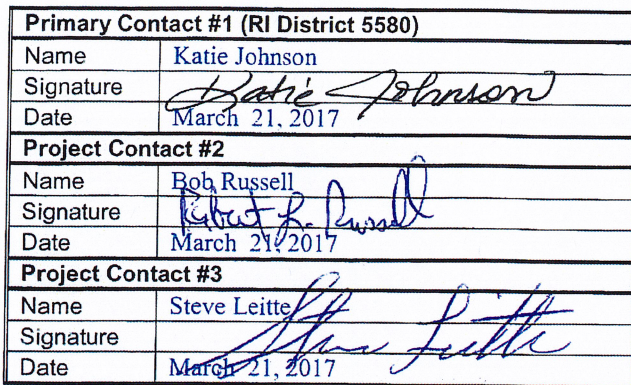 Primary Contact #1 (RI District 5580)
Name Katie Johnson
Signature Katie Johnson
Date March 21, 2017
Project Contact #2
Name Bob Russell
Signature Robert L. Russell
Date March 21, 2017
Project Contact #3
Name Steve Leitte
Signature Steve Leitte
Date March 21, 2017